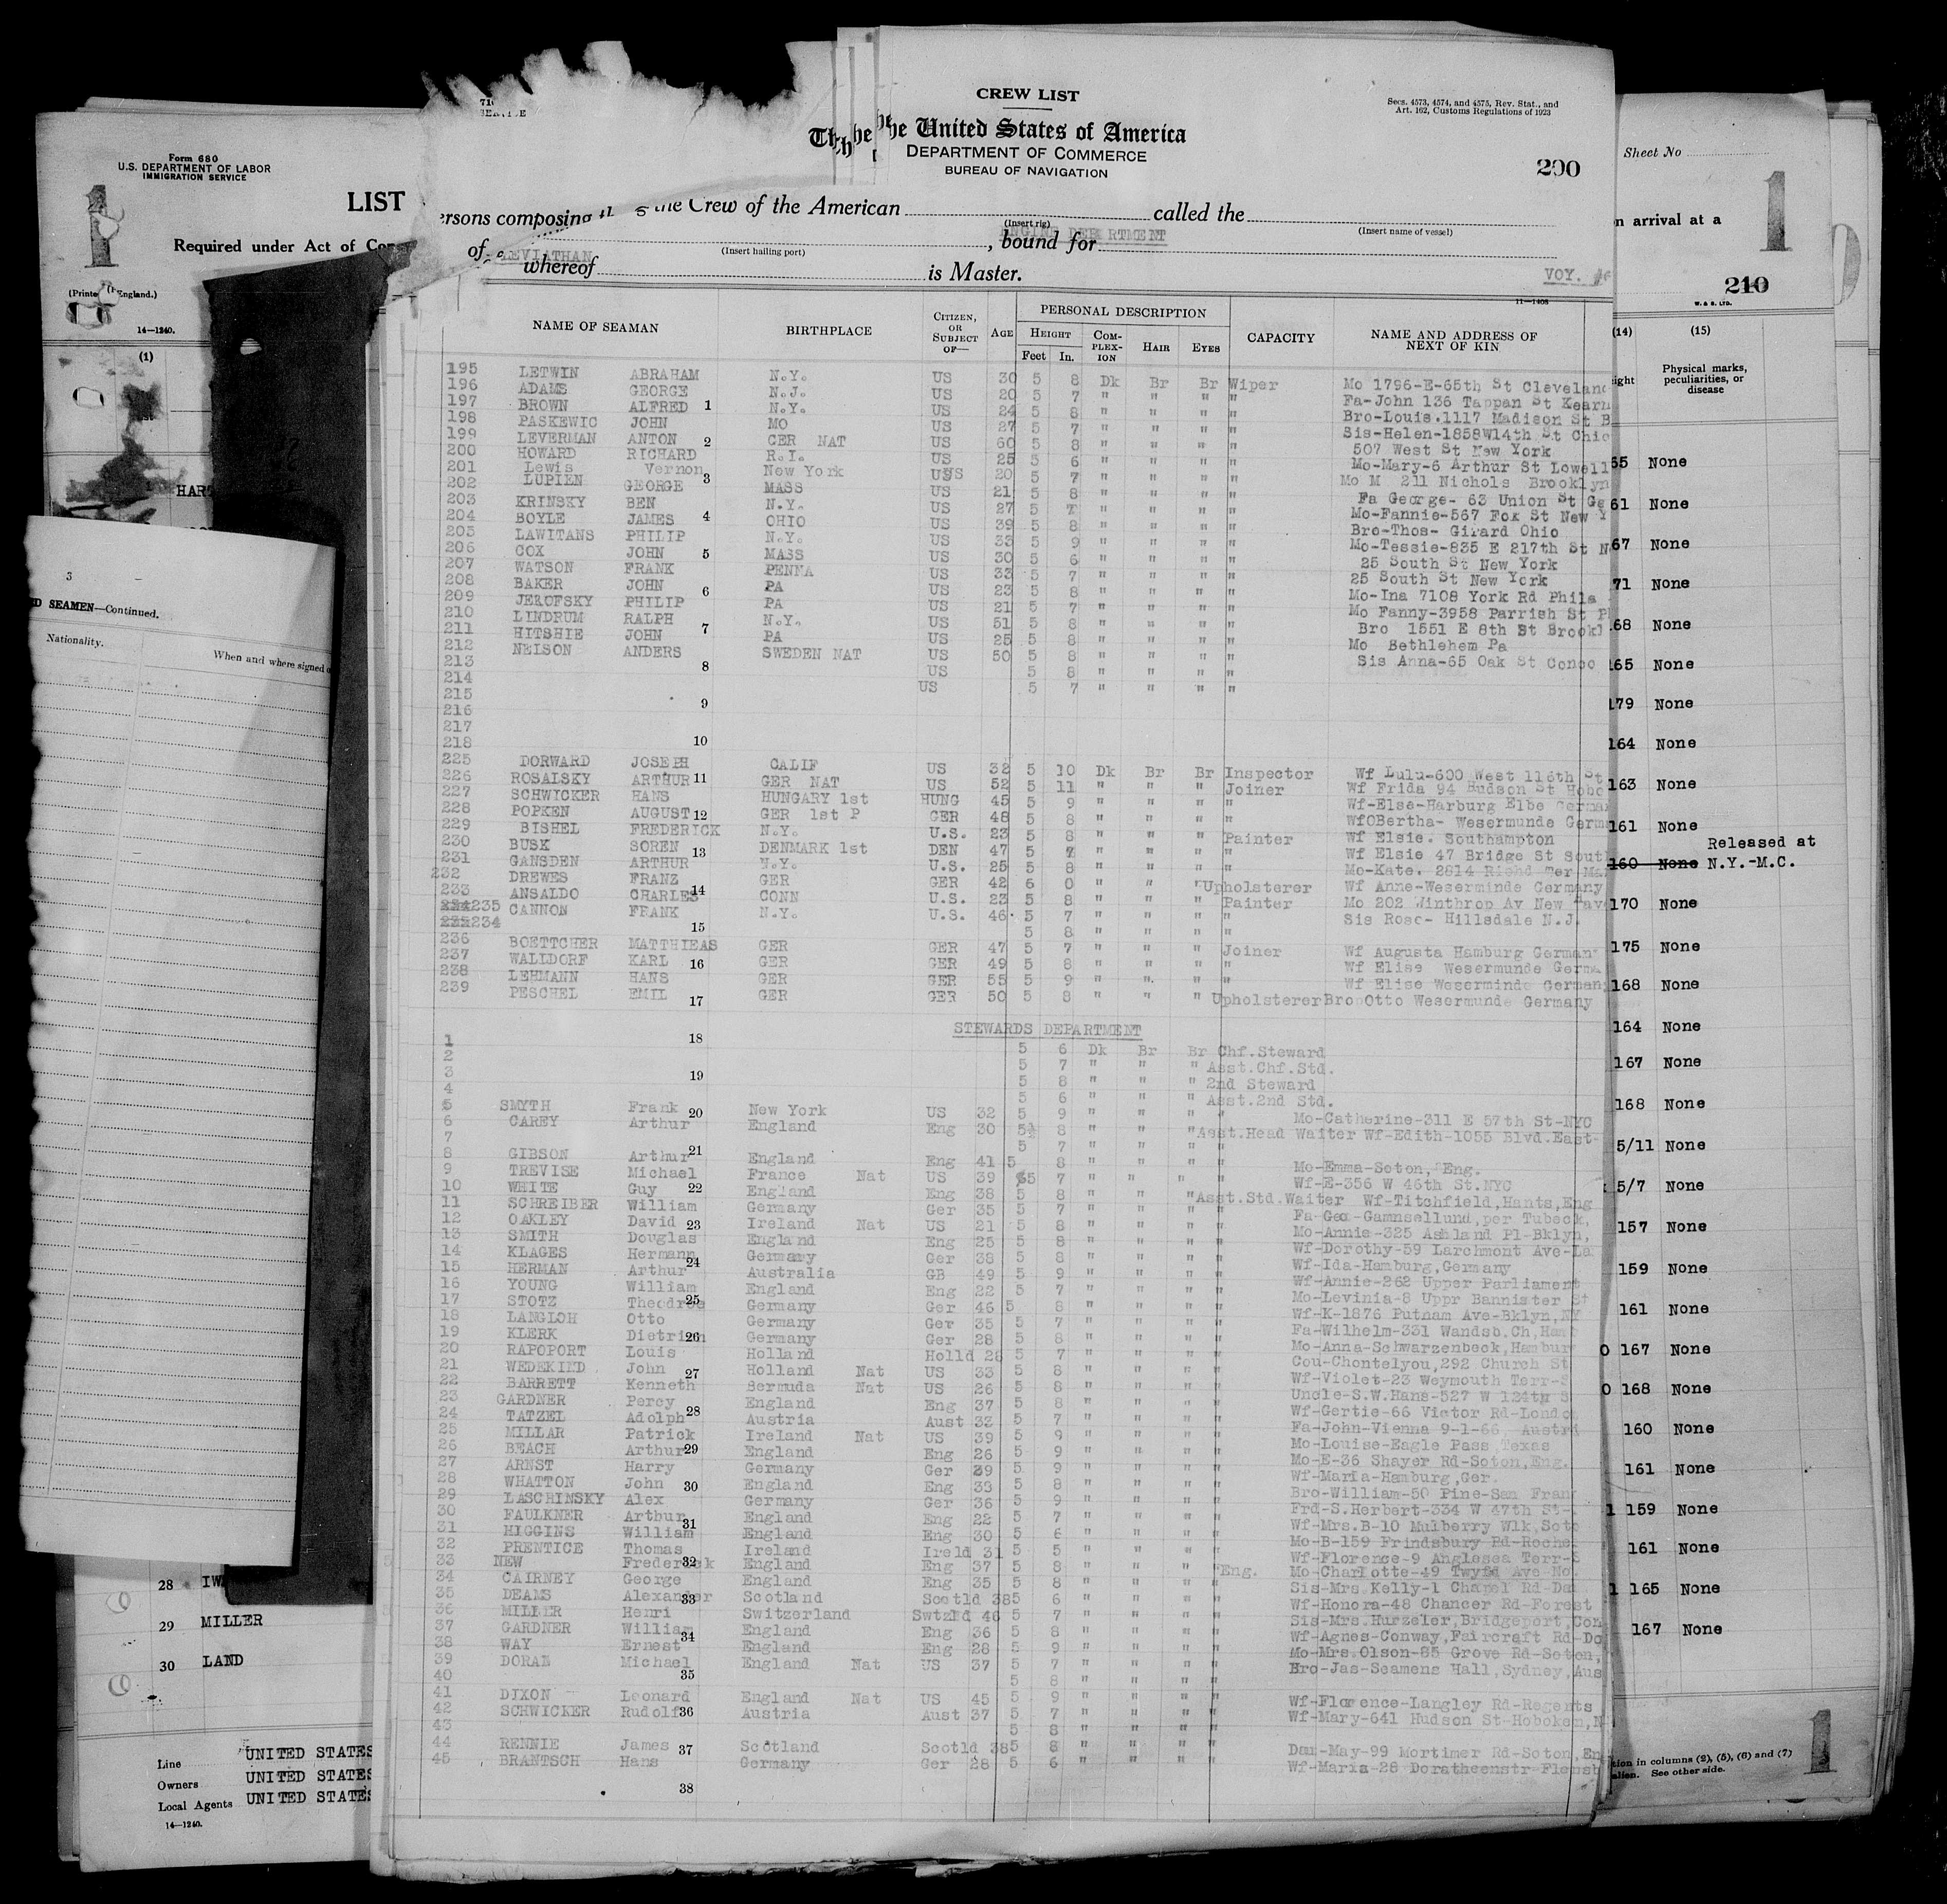 CREW LIST
Secs. 4573, 4574, and 4575, Rev. Stat., and
Art. 162, Customs Regulations of 1923
The United States of America
DEPARTMENT OF COMMERCE
BUREAU OF NAVIGATION
200
ersons composing the Crew of the American called the
(Insert rig) (Insert name of vessel)
ENGINE DEPARTMENT
of (Insert hailing port) , bound for
LEVIATHAN
whereof is Master.
VOY.
11—1408
NAME OF SEAMAN BIRTHPLACE CITIZEN, OR SUBJECT OF— AGE PERSONAL DESCRIPTION CAPACITY NAME AND ADDRESS OF NEXT OF KIN
HEIGHT COMPLEXION HAIR EYES
Feet In.
195 LETWIN ABRAHAM N.Y. US 30 5 8 Dk Br Br Wiper Mo 1796-E-65th St Cleveland
196 ADAMS GEORGE N.J. US 20 5 7 " " " " Fa-John 136 Tappan St Kearn
197 BROWN ALFRED 1 N.Y. US 24 5 8 " " " " Bro-Louis.1117 Madison St B
198 PASKEWIC JOHN MO US 27 5 7 " " " " Sis-Helen-1858W14th St Chic
199 LEVERMAN ANTON 2 GER NAT US 60 5 8 " " " " 507 West St New York
200 HOWARD RICHARD R.I. US 25 5 6 " " " " Mo-Mary-6 Arthur St Lowell
201 Lewis Vernon New York US 20 5 7 " " " " Mo M 211 Nichols Brooklyn
202 LUPIEN GEORGE 3 MASS US 21 5 8 " " " " Fa George- 63 Union St
203 KRINSKY BEN N.Y. US 27 5 " " " " Mo-Fannie-567 Fox St New Y
204 BOYLE JAMES 4 OHIO US 39 5 8 " " " " Bro-Thos- Girard Ohio
205 LAWITANS PHILIP N.Y. US 33 5 9 " " " " Mo-Tessie-835 E 217th St N
206 COX JOHN 5 MASS US 30 5 6 " " " " 25 South St New York
207 WATSON FRANK PENNA US 33 5 7 " " " " 25 South St New York
208 BAKER JOHN 6 PA US 23 5 8 " " " " Mo-Ina 7108 York Rd Phila
209 JEROFSKY PHILIP PA US 21 5 7 " " " " Mo Fanny-3958 Parrish St P
210 LINDRUM RALPH N.Y. US 51 5 8 " " " " Bro 1551 E 8th St Brookl
211 HITSHIE JOHN 7 PA US 25 5 8 " " " " Mo Bethlehem Pa
212 NELSON ANDERS SWEDEN NAT US 50 5 8 " " " " Sis Anna-65 Oak St Conco
213 8 US 5 8 " " " "
214 US 5 7 " " " "
215 9
216
217
218 10
225 DORWARD JOSEPH CALIF US 32 5 10 Dk Br Br Inspector Wf Lulu-600 West 116th St
226 ROSALSKY ARTHUR 11 GER NAT US 52 5 11 " " " Joiner Wf Frida 94 Hudson St Hobo
227 SCHWICKER HANS HUNGARY 1st HUNG 45 5 9 " " " " Wf-Else-Harburg Elbe German
228 POPKEN AUGUST 12 GER 1st P GER 48 5 8 " " " " WfOBertha- Wesermunde Germ
229 BISHEL FREDERICK N.Y. U.S. 23 5 8 " " " Painter Wf Elsie. Southampton
230 BUSK SOREN 13 DENMARK 1st DEN 47 5 " " " " Wf Elsie 47 Bridge St Sout
231 GANSDEN ARTHUR N.Y. U.S. 25 5 8 " " " " Mo-Kate. 2814 Richd Ter Ma
232 DREWES FRANZ GER GER 42 6 0 " " " Upholsterer Wf Anne-Weserminde Germany
233 ANSALDO CHARLES 14 CONN U.S. 23 5 8 " " " Painter Mo 202 Winthrop Av New Hav
235 CANNON FRANK N.Y. U.S. 46 5 7 " " " " Sis Rose- Hillsdale N.J.
234 15 5 8 " " " "
236 BOETTCHER MATTHIEAS GER GER 47 5 7 " " " Joiner Wf Augusta Hamburg German
237 WALLDORF KARL 16 GER GER 49 5 8 " " " " Wf Elise Wesermunde Germa
238 LEHMANN HANS GER GER 55 5 9 " " " " Wf Elise Weserminde German
239 PESCHEL EMIL 17 GER GER 50 5 8 " " " Upholsterer Bro Otto Wesermunde Germany
STEWARDS DEPARTMENT
1 18 5 6 Dk Br Br Chf.Steward
2 5 7 " " " Asst.Chf.Std.
3 19 5 8 " " " 2nd Steward
4 5 6 " " " Asst.2nd Std.
5 SMYTH Frank 20 New York US 32 5 9 " " " " Mo-Catherine-311 E 57th St-NYC
6 CAREY Arthur England Eng 30 5½ 8 " " " Asst.Head Waiter Wf-Edith-1055 Blvd.East-
7 5 7 " " " "
8 GIBSON Arthur 21 England Eng 41 5 8 " " " " Mo-Emma-Soton, Eng.
9 TREVISE Michael France Nat US 39 5 7 " " " " Wf-E-356 W 46th St.NYC
10 WHITE Guy 22 England Eng 38 5 8 " " " Asst.Std.Waiter Wf-Titchfield,Hants,Eng
11 SCHREIBER William Germany Ger 35 5 7 " " " " Fa-Geo-Gamnsellund,per Tubeck,
12 OAKLEY David 23 Ireland Nat US 21 5 8 " " " " Mo-Annie-325 Ashland Pl-Bklyn,
13 SMITH Douglas England Eng 25 5 8 " " " " Wf-Dorothy-59 Larchmont Ave-La
14 KLAGES Hermann 24 Germany Ger 38 5 8 " " " " Wf-Ida-Hamburg,Germany
15 HERMAN Arthur Australia GB 49 5 9 " " " " Wf-Annie-262 Upper Parliament
16 YOUNG William England Eng 22 5 7 " " " " Mo-Levinia-8 Uppr Bannister St
17 STOTZ Theodree 25 Germany Ger 46 5 8 " " " " Wf-K-1876 Putnam Ave-Bklyn,NY
18 LANGLOH Otto Germany Ger 35 5 7 " " " " Fa-Wilhelm-331 Wandsb.Ch,Ham
19 KLERK Dietrich 26 Germany Ger 28 5 8 " " " " Mo-Anna-Schwarzenbeck,Hambur
20 RAPOPORT Louis Holland Holld 28 5 7 " " " " Cou-Chontelyou,292 Church St
21 WEDEKIND John 27 Holland Nat US 33 5 8 " " " " Wf-Violet-23 Weymouth Terr-S
22 BARRETT Kenneth Bermuda Nat US 26 5 8 " " " " Uncle-S.W.Hans-527 W 124th S
23 GARDNER Percy England Eng 37 5 8 " " " " Wf-Gertie-66 Viator Rd-London
24 TATZEL Adolph 28 Austria Aust 33 5 7 " " " " Fa-John-Vienna 9-1-66, Austri
25 MILLAR Patrick Ireland Nat US 39 5 9 " " " " Mo-Louise-Eagle Pass Texas
26 BEACH Arthur 29 England Eng 26 5 9 " " " " Mo-E-36 Shayer Rd-Soton,Eng.
27 ARNST Harry Germany Ger 39 5 9 " " " " Wf-Maria-Hamburg,Ger.
28 WHATTON John 30 England Eng 33 5 8 " " " " Bro-William-50 Pine-San Fran
29 LASCHINSKY Alex Germany Ger 36 5 9 " " " " Frd-S.Herbert-334 W 47th St-
30 FAULKNER Arthur England Eng 22 5 7 " " " " Wf-Mrs.B-10 Mulberry Wlk,Soto
31 HIGGINS William 31 England Eng 30 5 6 " " " " Mo-B-159 Frindsbury Rd-Roche
32 PRENTICE Thomas Ireland Ireld 31 5 5 " " " " Wf-Florence-9 Anglesea Terr-S
33 NEW Frederick 32 England Eng 37 5 8 " " " Eng. Mo-Charlotte-49 Twyfd Ave-No.
34 CAIRNEY George England Eng 35 5 8 " " " " Sis-Mrs.Kelly-1 Chapel Rd-
35 DEANS Alexander 33 Scotland Scotld 38 5 6 " " " " Wf-Honora-48 Chancer Rd-Forest
36 MILLER Henri Switzerland Swtzld 46 5 7 " " " " Sis-Mrs.Hurzeler,Bridgeport,Con
37 GARDNER William 34 England Eng 36 5 8 " " " " Wf-Agnes-Conway,Faircraft Rd-Do
38 WAY Ernest England Eng 28 5 9 " " " " Mo-Mrs.Olson-85 Grove Rd-Soton,
39 DORAN Michael England Nat US 37 5 7 " " " " Bro-Jas-Seamens Hall,Sydney,Aus
40 35 5 8 " " " "
41 DIXON Leonard England Nat US 45 5 9 " " " " Wf-Florence-Langley Rd-Regents
42 SCHWICKER Rudolf 36 Austria Aust 37 5 7 " " " " Wf-Mary-641 Hudson St-Hoboken,N
43 5 8 " " " "
44 RENNIE James 37 Scotland Scotld 38 5 8 " " " " Dau-May-99 Mortimer Rd-Soton,En
45 BRANTSCH Hans Germany Ger 28 5 6 " " " " Wf-Maria-28 Doratheenstr-Flensb
38
Form 680
U.S. DEPARTMENT OF LABOR
IMMIGRATION SERVICE
1
LIST
Required under Act of Con
(Printed England.)
14—1240.
(1)
HART
3
D SEAMEN—Continued.
Nationality. When and where signed o
28 IW
29 MILLER
30 LAND
Line UNITED STATES
Owners UNITED STATES
Local Agents UNITED STATES
14—1240.
Sheet No
1
n arrival at a
210
W. & S. LTD.
(14) (15)
ight Physical marks, peculiarities, or disease
65 None
61 None
67 None
71 None
68 None
165 None
179 None
164 None
163 None
161 None
Released at
160 None N.Y.-M.C.
170 None
175 None
168 None
164 None
167 None
168 None
5/11 None
5/7 None
157 None
159 None
161 None
0 167 None
0 168 None
160 None
161 None
1 159 None
161 None
1 165 None
167 None
tion in columns (2), (5), (6) and (7)
alien. See other side.
1